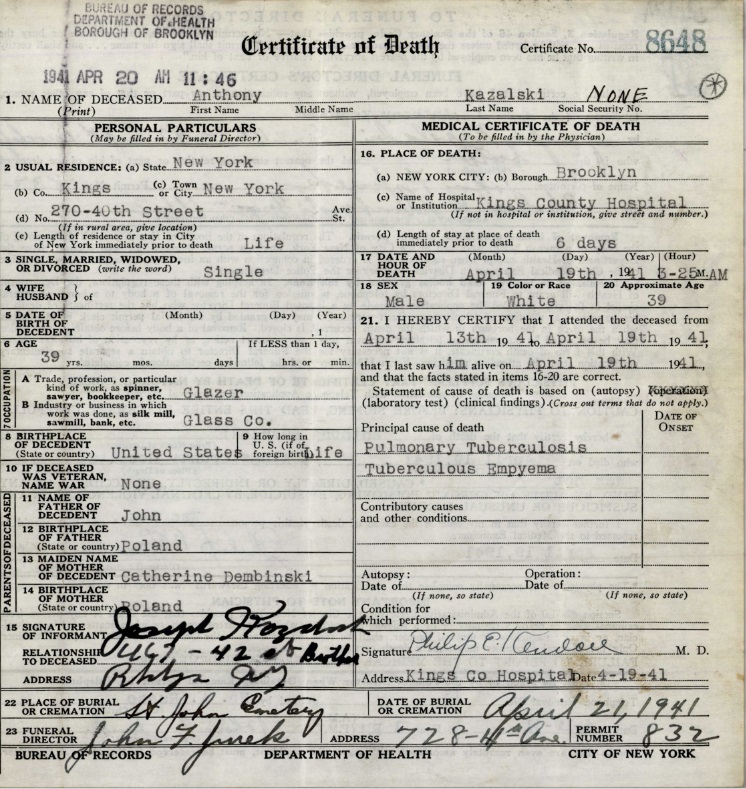 BUREAU OF RECORDS
DEPARTMENT OF HEALTH
BOROUGH OF BROOKLYN
Certificate of Death
Certificate No. 8648
1941 APR 20 AM 11:46
1. NAME OF DECEASED Anthony Kazalski NONE
(Print) First Name Middle Name Last Name Social Security No.
PERSONAL PARTICULARS
(May be filled in by Funeral Director)
2 USUAL RESIDENCE: (a) State New York
(b) Co. Kings (c) Town or City New York
(d) No. 270-40th Street Ave. St.
(If in rural area, give location)
(e) Length of residence or stay in City
of New York immediately prior to death Life
3 SINGLE, MARRIED, WIDOWED,
OR DIVORCED (write the word) Single
4 WIFE
HUSBAND } of
5 DATE OF (Month) (Day) (Year)
BIRTH OF
DECEDENT , 1
6 AGE If LESS than 1 day,
39 yrs. mos. days hrs. or min.
7 OCCUPATION
A Trade, profession, or particular
kind of work, as spinner,
sawyer, bookkeeper, etc. Glazer
B Industry or business in which
work was done, as silk mill,
sawmill, bank, etc. Glass Co.
8 BIRTHPLACE
OF DECEDENT
(State or country) United States
9 How long in
U. S. (if of
foreign birth) Life
10 IF DECEASED
WAS VETERAN,
NAME WAR None
PARENTS OF DECEASED
11 NAME OF
FATHER OF
DECEDENT John
12 BIRTHPLACE
OF FATHER
(State or country) Poland
13 MAIDEN NAME
OF MOTHER
OF DECEDENT Catherine Dembinski
14 BIRTHPLACE
OF MOTHER
(State or country) Poland
15 SIGNATURE
OF INFORMANT Joseph
RELATIONSHIP
TO DECEASED 467 - 42 st Brother
ADDRESS Bklyn NY
MEDICAL CERTIFICATE OF DEATH
(To be filled in by the Physician)
16. PLACE OF DEATH:
(a) NEW YORK CITY: (b) Borough Brooklyn
(c) Name of Hospital
or Institution Kings County Hospital
(If not in hospital or institution, give street and number.)
(d) Length of stay at place of death
immediately prior to death 6 days
17 DATE AND (Month) (Day) (Year) (Hour)
HOUR OF
DEATH April 19th , 1941 3-25 M. AM
18 SEX 19 Color or Race 20 Approximate Age
Male White 39
21. I HEREBY CERTIFY that I attended the deceased from
April 13th 1941 to April 19th 1941,
that I last saw him alive on April 19th 1941,
and that the facts stated in items 16-20 are correct.
Statement of cause of death is based on (autopsy) (operation)
(laboratory test) (clinical findings). (Cross out terms that do not apply.)
Principal cause of death DATE OF ONSET
Pulmonary Tuberculosis
Tuberculous Empyema
Contributory causes
and other conditions
Autopsy: Operation:
Date of Date of
(If none, so state) (If none, so state)
Condition for
which performed:
Signature Philip E. M. D.
Address Kings Co Hospital Date 4-19-41
22 PLACE OF BURIAL
OR CREMATION St. John Cemetery
DATE OF BURIAL
OR CREMATION April 21, 1941
23 FUNERAL
DIRECTOR John F. Jurek ADDRESS 728-4th Ave. PERMIT NUMBER 832
BUREAU OF RECORDS DEPARTMENT OF HEALTH CITY OF NEW YORK